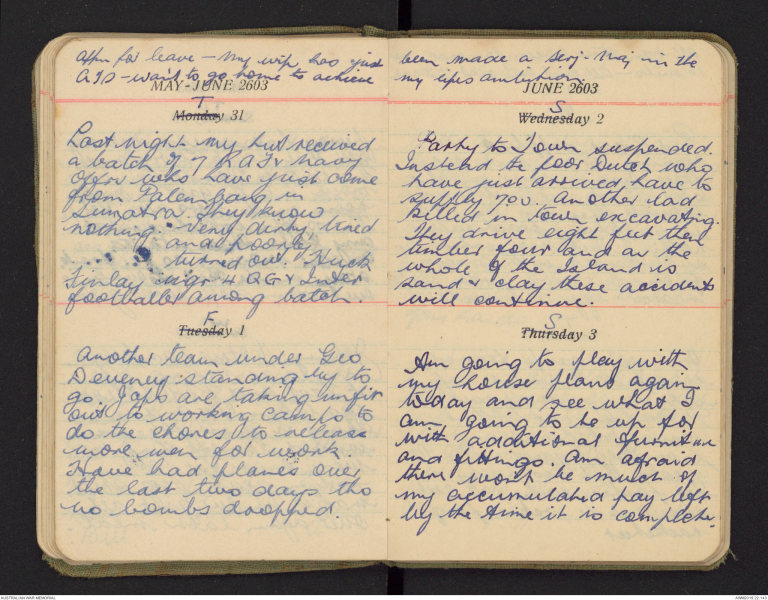 affn for leave - My wife has just
ATS - wait to go home to achieve
MAY-JUNE 2603
T
Monday 31
Last night my hut received
a batch of 7 RAF & Navy
offrs who have just come
from Palembang in
Sumatra. They know
nothing. Very dirty, tired
and poorly
turned out. Huck
Finlay Migr 4 QG & Inter
footballer among batch.
F
Tuesday 1
Another team under Geo
Deveney standing by to
go. Japs are taking unfit
out to working camps to
do the chores to release
more men for work.
Have had planes over
the last two days tho
no bombs dropped.
been made a serj-maj in the
my lifes ambition.
JUNE 2603
S
Wednesday 2
Party to Town suspended.
Instead the poor Dutch who
have just arrived, have to
supply 700. Another lad
killed in town excavating.
They drive eight feet then
timber four and as the
whole of the Island is
sand & clay these accidents
will continue.
S
Thursday 3
Am going to play with
my house plans again
today and see what I
am going to be up for
with additional furniture
and fittings. Am afraid
there won't be much of
my accumulated pay left
by the time it is complete.
AUSTRALIAN WAR MEMORIAL